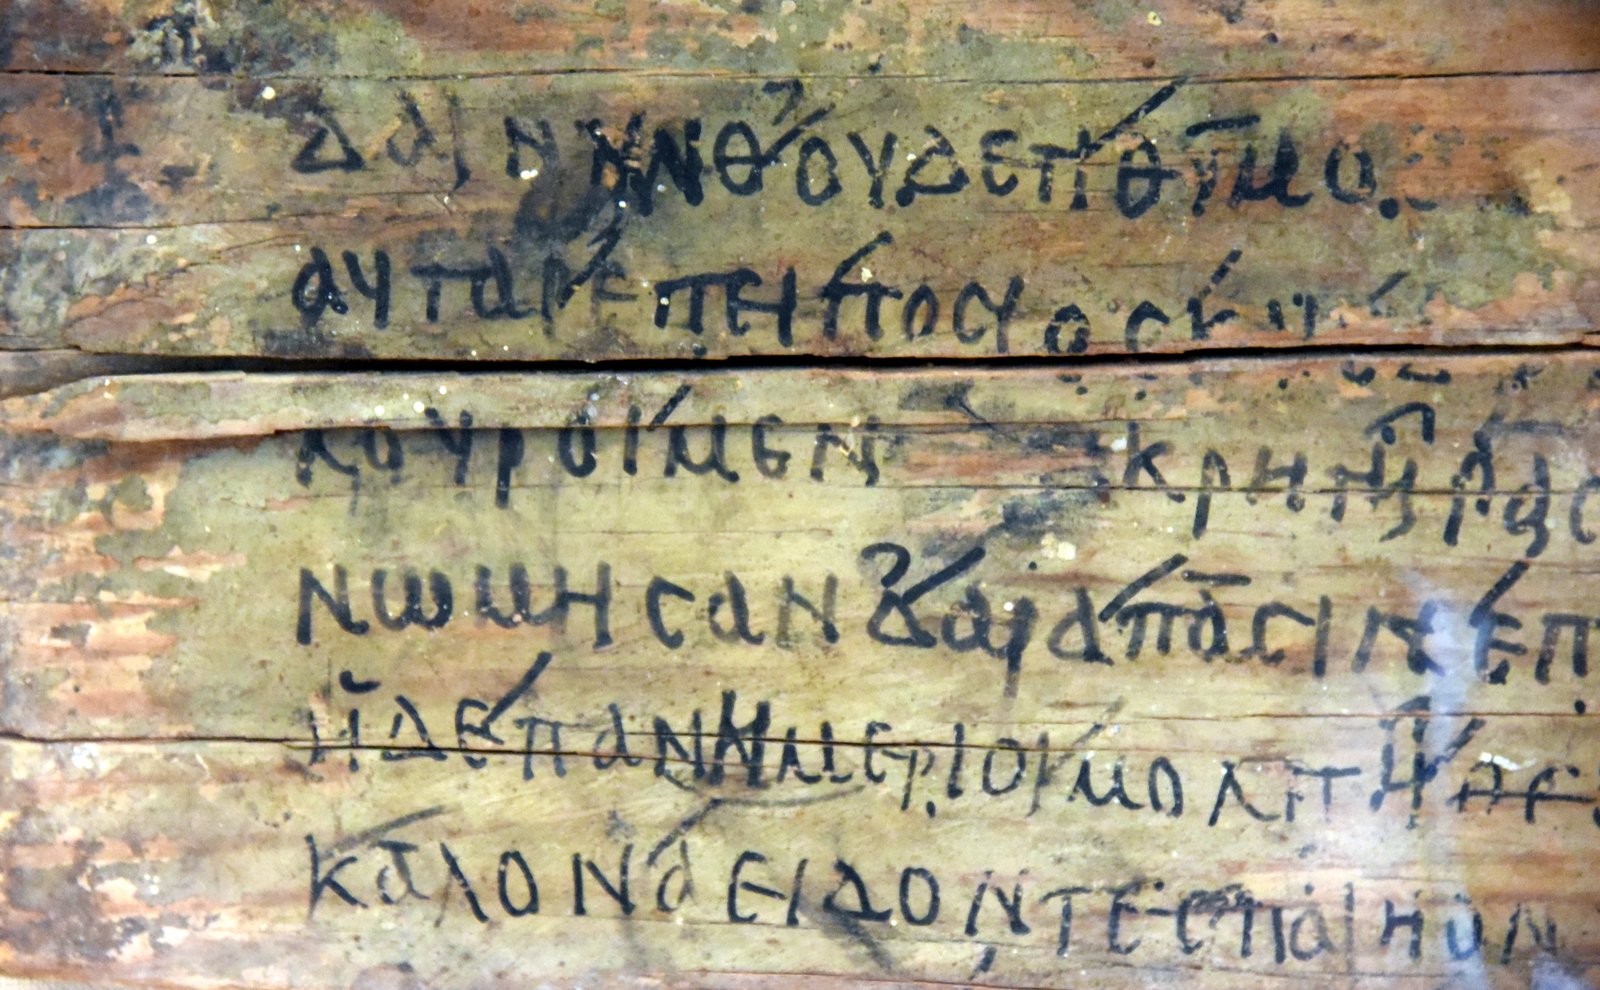 ουδε θυμο
αυταρ επει ποσιος
κουροι μεν κρητηρας
νωμησαν δ αρα πασιν επ
ηδε πανημεριοι μολπη
καλον αειδοντες παιηον